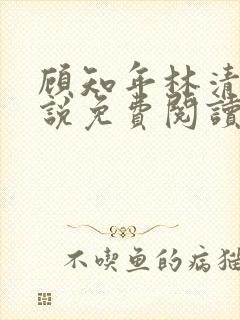 顾知年林清
說免費閱讀
不喫鱼的病猫